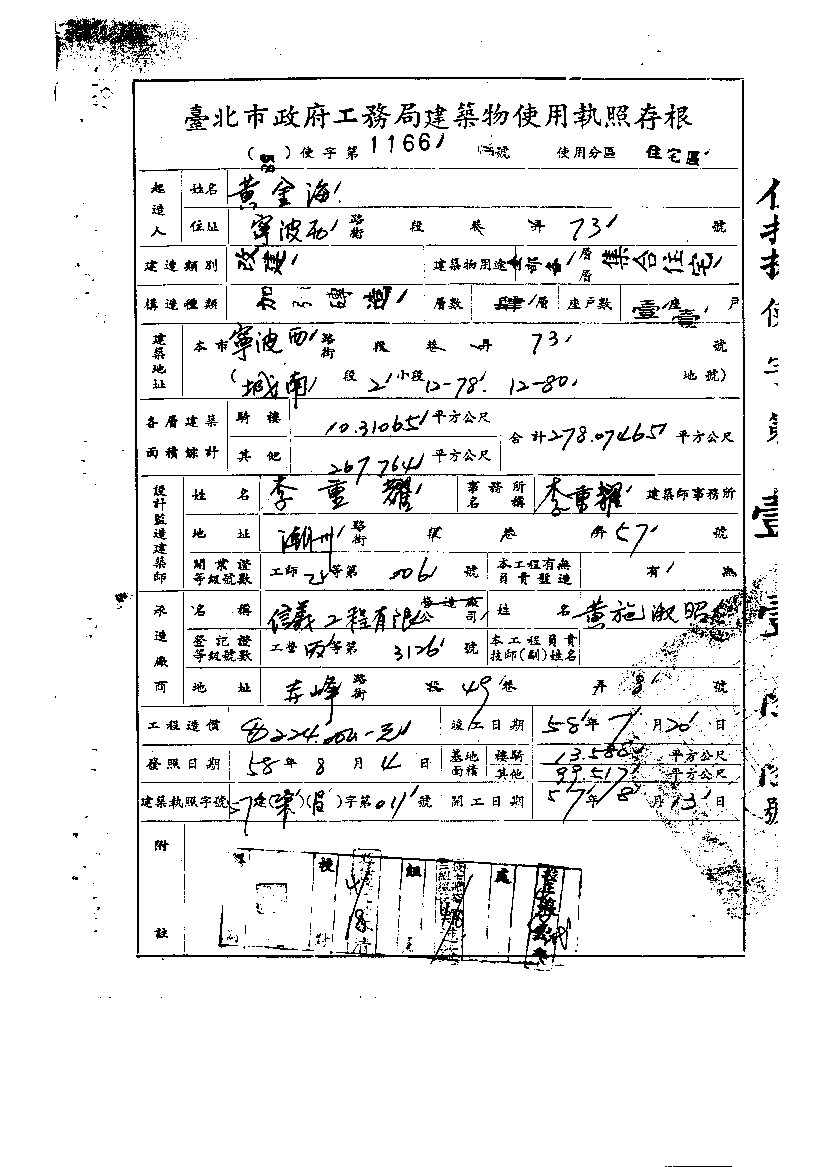 臺北市政府工務局建築物使用執照存根
( )使字第 1166 號 使用分區 住宅區
起造人 姓名 黃金海
住址 寧波西 路街 段 巷 弄 73 號
建造類別 改建 建築物用途 層層 集合住宅
構造種類 加引磚造 層數 肆層 座戶數 壹座壹戶
建築地址 本市 寧波西 路街 段 巷 弄 73 號
(城南 段 2 小段 12-78. 12-80 地號)
各層建築面積綜計 騎樓 10.31065 平方公尺 合計 278.07465 平方公尺
其他 267.764 平方公尺
設計監造建築師 姓名 李重耀 事務所名稱 李重耀 建築師事務所
地址 潮州 路街 段 巷 弄 57 號
開業證等級號數 工師 等第 006 號 本工程有無負責監造 有 無
承造廠商 名稱 信義工程有限公司 營造廠 姓名 黃施淑昭
登記證等級號數 工營 丙 等第 3126 號 本工程負責技師(副)姓名
地址 赤峰 路街 段 49 巷 弄 8 號
工程造價 224.000-元 竣工日期 58年 7月 20日
發照日期 58年 8月 4日 基地面積 樓騎 13.588 平方公尺
其他 99.517 平方公尺
建築執照字號 57建( )( )字第 011 號 開工日期 57年 8月 13日
附註
授 組 處
4/8
使字第壹壹
號